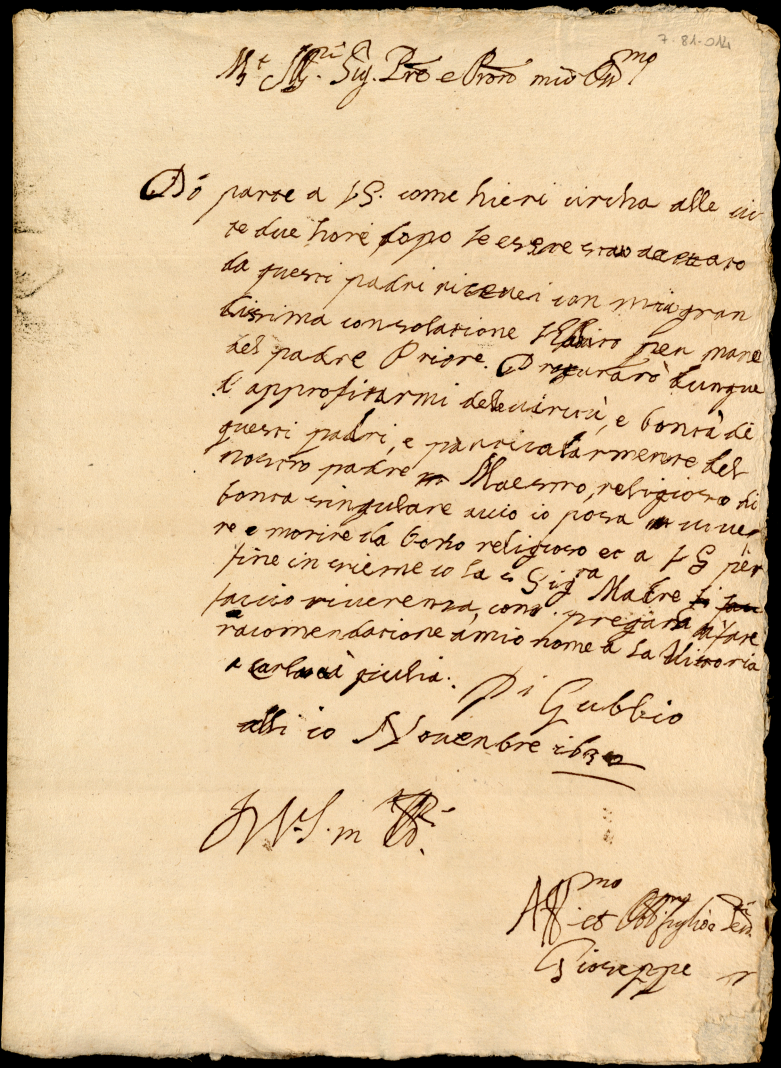 7-81-014
M.to Ill.ri Sig. Pre e Prone mio Oss.mo
Dó parte a VS. come hieri circha alle vi
te due hore dopo le essere stato
da questi padri riceuei con mia gran
dissima consolatione per mano
del padre Priore. Procuraró dunque
d'approfitarmi dele uirtú, e bontà di
questi padri, e particularmente del
nostro padre Maestro, religioso di
bonta singulare acio io posa uiuer
re e morire da bono religioso et a VS per
fine insieme co la Sig.ra Madre
faccio riuerenza, con pregarla di fare
racomendatione a mio nome a La Uittoria
e Carla et giulia. Di Gubbio
alli 10 Nouenbre 163
Di V.S. m
Aff.mo et Obb.mo figlio e
Gioseppe